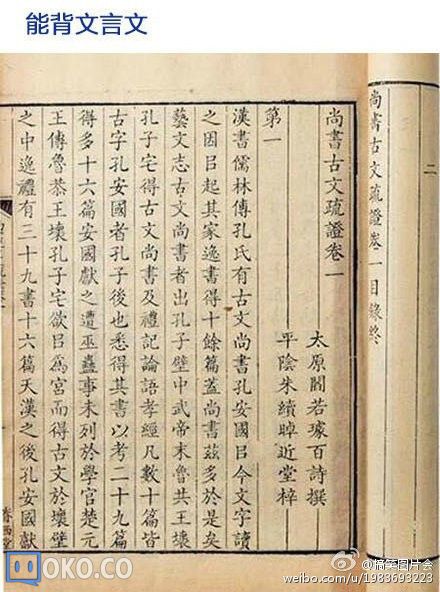 能背文言文
二
尚書古文疏證卷一目錄終
尚書古文疏證卷一
太原閻若璩百詩撰
平陰朱續晫近堂梓
第一
漢書儒林傳孔氏有古文尚書孔安國㠯今文字讀
之因㠯起其家逸書得十餘篇蓋尚書茲多於是矣
藝文志古文尚書者出孔子壁中武帝末魯共王壞
孔子宅得古文尚書及禮記論語孝經凡數十篇皆
古字孔安國者孔子後也悉得其書以考二十九篇
得多十六篇安國獻之遭巫蠱事未列於學官楚元
王傳魯恭王壞孔子宅欲㠯爲宮而得古文於壞壁
之中逸禮有三十九書十六篇天漢之後孔安國獻
OKO.CO
@搞笑图片会
weibo.com/u/1983693223